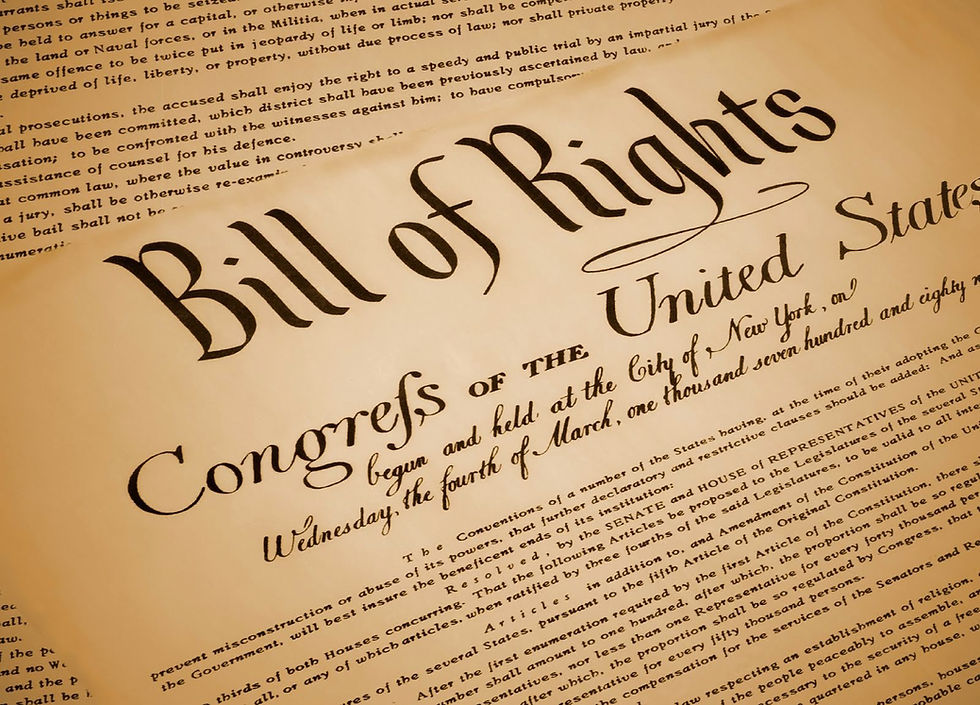 arrants shall
persons or things to be seized.
be held to answer for a capital, or otherwise
the land or Naval forces, or in the Militia, when in actual
same offence to be twice put in jeopardy of life or limb; nor shall be
deprived of life, liberty, or property, without due process of law; nor shall private property
al prosecutions, the accused shall enjoy the right to a speedy and public trial by an impartial jury of the
hall have been committed, which district shall have been previously ascertained by law,
sation; to be confronted with the witnesses against him; to have
assistance of counsel for his defence.
at common law, where the value in controversy
a jury, shall be otherwise
ive bail shall not be
Bill of Rights
Congreſs OF THE United States
begun and held at the City of New York, on
Wednesday, the fourth of March, one thousand seven hundred and eighty
The Conventions of a number of the States having, at the time of their adopting the
prevent misconstruction or abuse of its powers, that further declaratory and restrictive clauses should be added: And
the Government, will best insure the beneficent ends of its institution:
Resolved, by the SENATE and HOUSE of REPRESENTATIVES of the
thirds of both Houses concurring. That the following Articles be proposed to the Legislatures of the several
all, or any of which articles, when ratified by three fourths of the said Legislatures, to be valid to all
Articles in addition to, and Amendment of the Constitution of the
res of the several States, pursuant to the fifth Article of the Original Constitution.
After the first enumeration required by the first Article of the Constitution, there
mber shall amount to one hundred, after which, the proportion shall be so
sentatives, nor less than one Representative for every forty thousand
after which, the proportion shall be so regulated by Congress, that
resentative for every fifty thousand persons.
the compensation for the services of the Senators and
law respecting an establishment of religion,
of the people peaceably to assemble,
necessary to the security of a
quartered in any house,
persons,